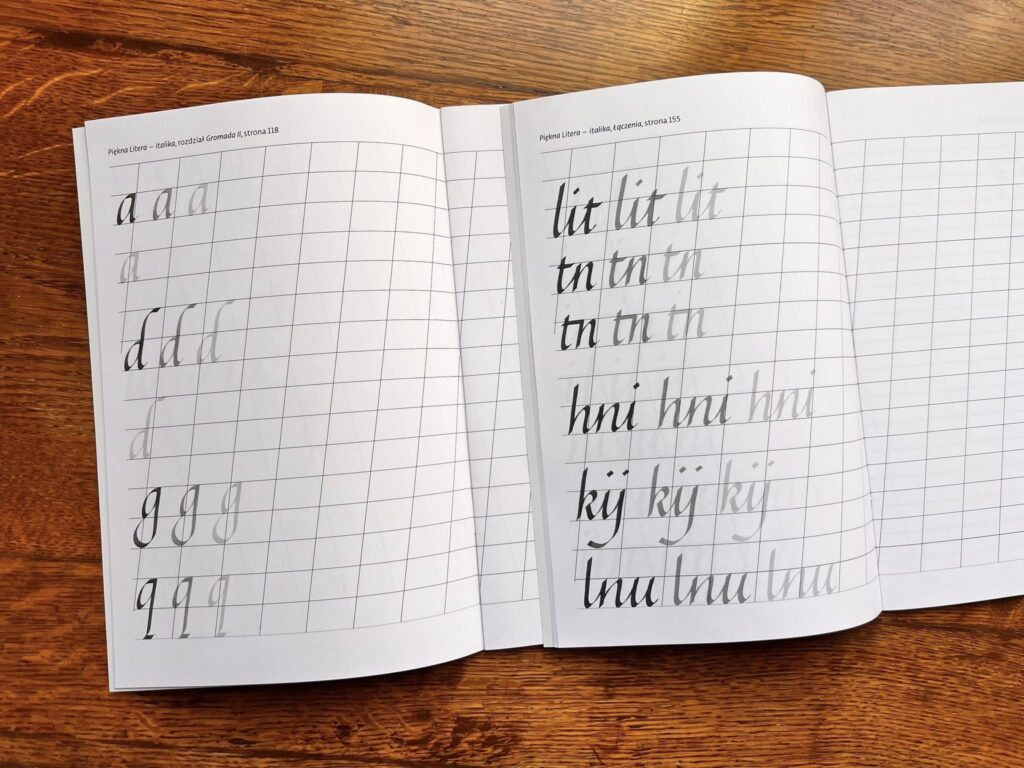 Piękna Litera – italika, rozdział Gromada II, strona 118
a a a
a
d d d
d
g g g
q q q
Piękna Litera – italika, Łączenia, strona 155
lit lit lit
tn tn tn
tn tn tn
hni hni hni
kij kij kij
lnu lnu lnu